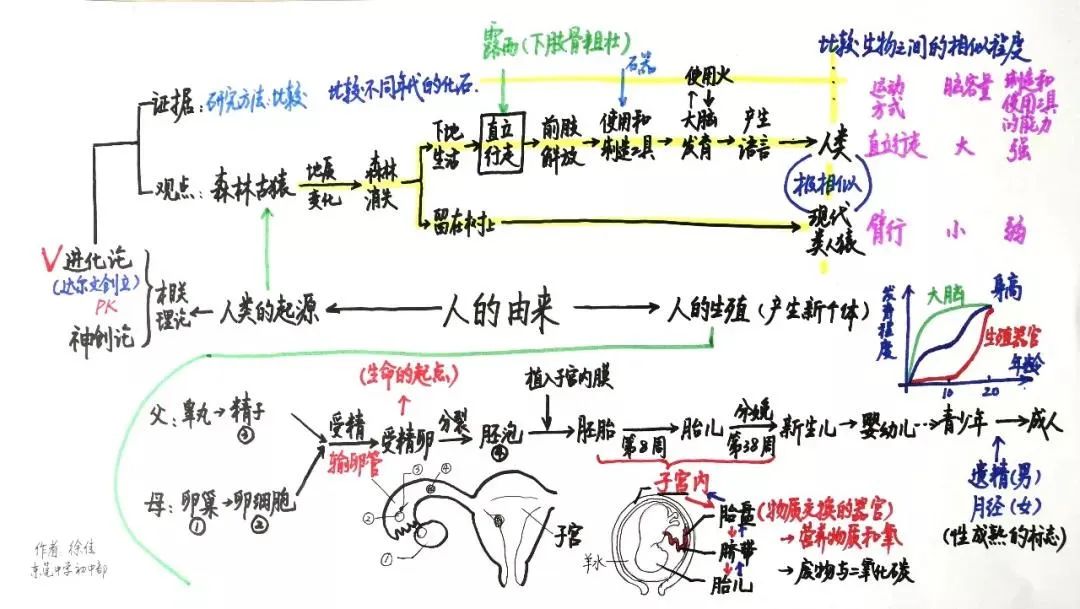 露西(下肢骨粗壮)
比较生物之间的相似程度
证据:研究方法:比较 比较不同年代的化石.
石器
使用火
运动方式
脑容量
制造和使用工具的能力
下地生活
直立行走
前肢解放
使用和制造工具
大脑发育
产生语言
人类
直立行走 大 强
观点:森林古猿
地质变化
森林消失
(极相似)
留在树上
现代类人猿
臂行 小 弱
V进化论
(达尔文创立)
PK
神创论
相关理论
人类的起源
人的由来
人的生殖(产生新个体)
发育程度
大脑
身高
生殖器官
年龄
10 20
(生命的起点)
植入子宫内膜
父:睾丸→精子
③
母:卵巢→卵细胞
① ②
受精
输卵管
受精卵
分裂
胚泡
④
胚胎
第8周
胎儿
分娩
第38周
新生儿→婴幼儿…→青少年→成人
遗精(男)
月经(女)
(性成熟的标志)
子宫内
③ ④
②
①
子宫
羊水
胎盘(物质交换的器官)
→营养物质和氧
脐带
胎儿
→废物与二氧化碳
作者 徐佳
东莞中学初中部